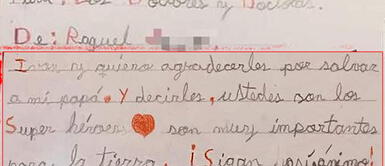 Para: Los Doctores y Doctoras.
De: Raquel
Ivan y quiero agradecerles por salvar
a mi papá. Y decirles, ustedes son los
Super héroes son muy importantes
para la tierra. ¡Sigan